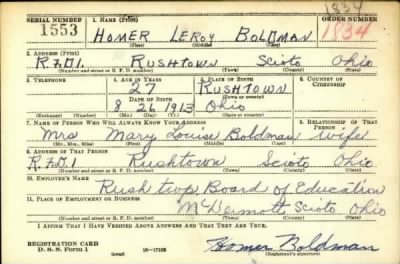 1834
SERIAL NUMBER 1. NAME (Print) ORDER NUMBER
1553 HOMER LEROY BOLDMAN 1834
(First) (Middle) (Last)
2. ADDRESS (Print)
R.F.D.1. RUSHTOWN Scioto Ohio
(Number and street or R. F. D. number) (Town) (County) (State)
3. TELEPHONE 4. AGE IN YEARS 5. PLACE OF BIRTH 6. COUNTRY OF CITIZENSHIP
27 RUSHTOWN
DATE OF BIRTH (Town or county)
8 26 1913 Ohio
(Exchange) (Number) (Mo.) (Day) (Yr.) (State or country)
7. NAME OF PERSON WHO WILL ALWAYS KNOW YOUR ADDRESS 8. RELATIONSHIP OF THAT PERSON
Mrs Mary Louise Boldman wife
(Mr., Mrs., Miss) (First) (Middle) (Last)
9. ADDRESS OF THAT PERSON
R.F.D.1 Rushtown Scioto Ohio
(Number and street or R. F. D. number) (Town) (County) (State)
10. EMPLOYER'S NAME
Rush twp Board of Education
11. PLACE OF EMPLOYMENT OR BUSINESS
McDermott Scioto Ohio
(Number and street or R. F. D. number) (Town) (County) (State)
I AFFIRM THAT I HAVE VERIFIED ABOVE ANSWERS AND THAT THEY ARE TRUE.
REGISTRATION CARD
D. S. S. Form 1 (over) Homer Boldman
(Registrant's signature)